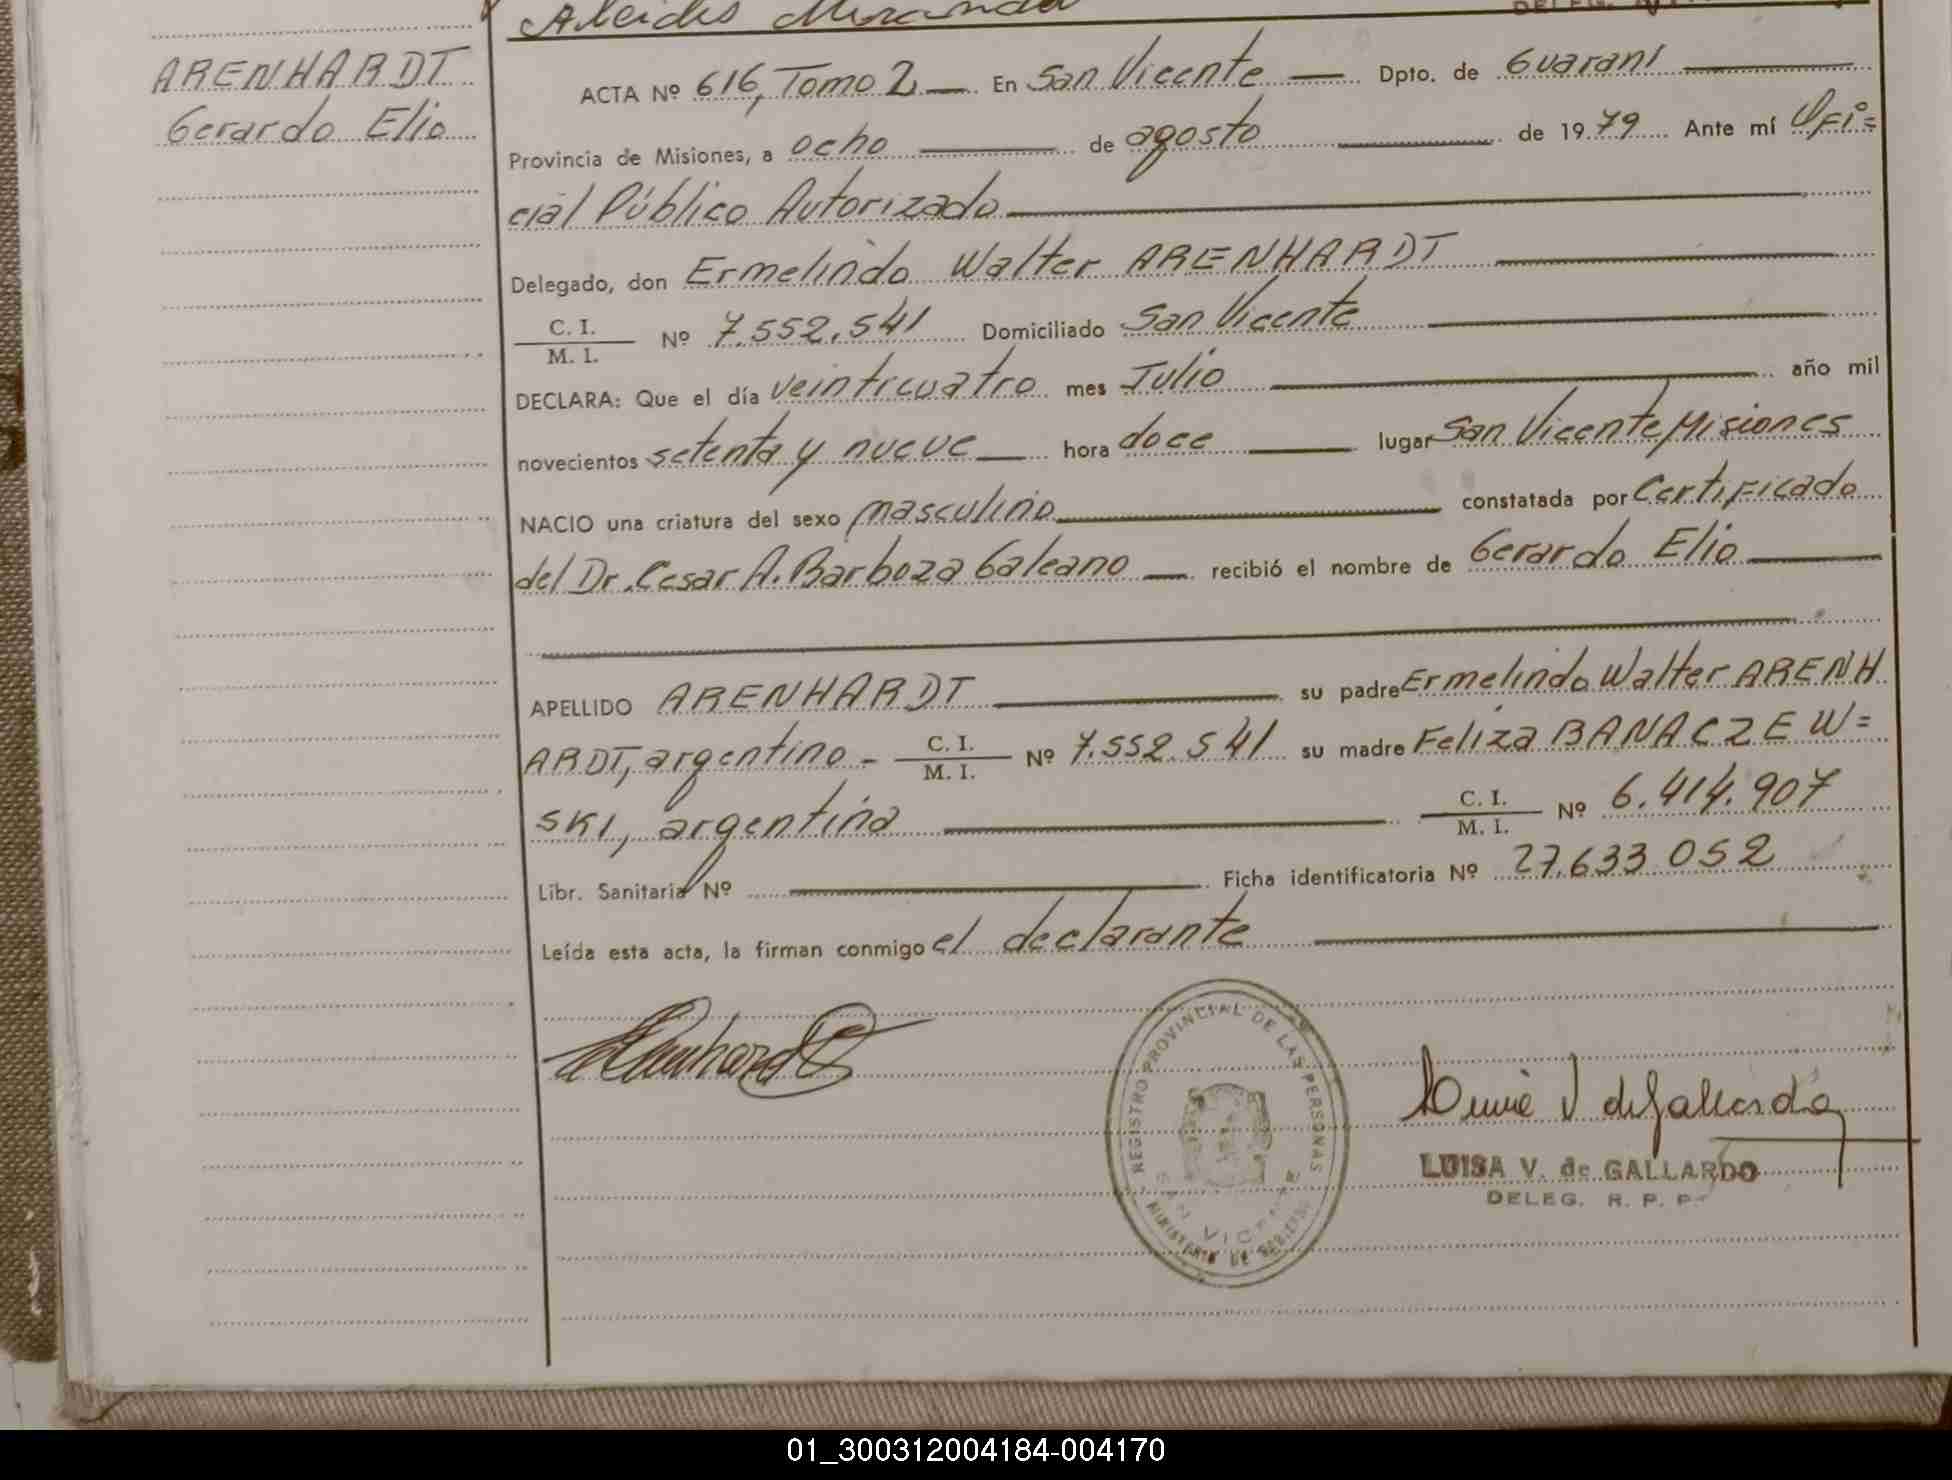 Aleides Miranda
DELEG.
ARENHARDT
Gerardo Elio
ACTA Nº 616, Tomo 2 En San Vicente Dpto. de Guaraní
Provincia de Misiones, a ocho de agosto de 1979 Ante mí Ofi=
cial Público Autorizado
Delegado, don Ermelindo Walter ARENHARDT
C. I.
M. I. Nº 7.552.541 Domiciliado San Vicente
DECLARA: Que el día veinticuatro mes Julio año mil
novecientos setenta y nueve hora doce lugar San Vicente, Misiones
NACIO una criatura del sexo masculino constatada por Certificado
del Dr. Cesar A. Barboza Galeano recibió el nombre de Gerardo Elio
APELLIDO ARENHARDT su padre Ermelindo Walter ARENH
ARDT, argentino - C. I.
M. I. Nº 7.552.541 su madre Feliza BANACZEW=
SKI, argentina C. I.
M. I. Nº 6.414.907
Libr. Sanitaria Nº Ficha identificatoria Nº 27.633.052
Leída esta acta, la firman conmigo el declarante
REGISTRO PROVINCIAL DE LAS PERSONAS
SAN VICENTE
MINISTERIO DE GOBIERNO
V de Gallardo
LUISA V. de GALLARDO
DELEG. R. P. P.
01_300312004184-004170